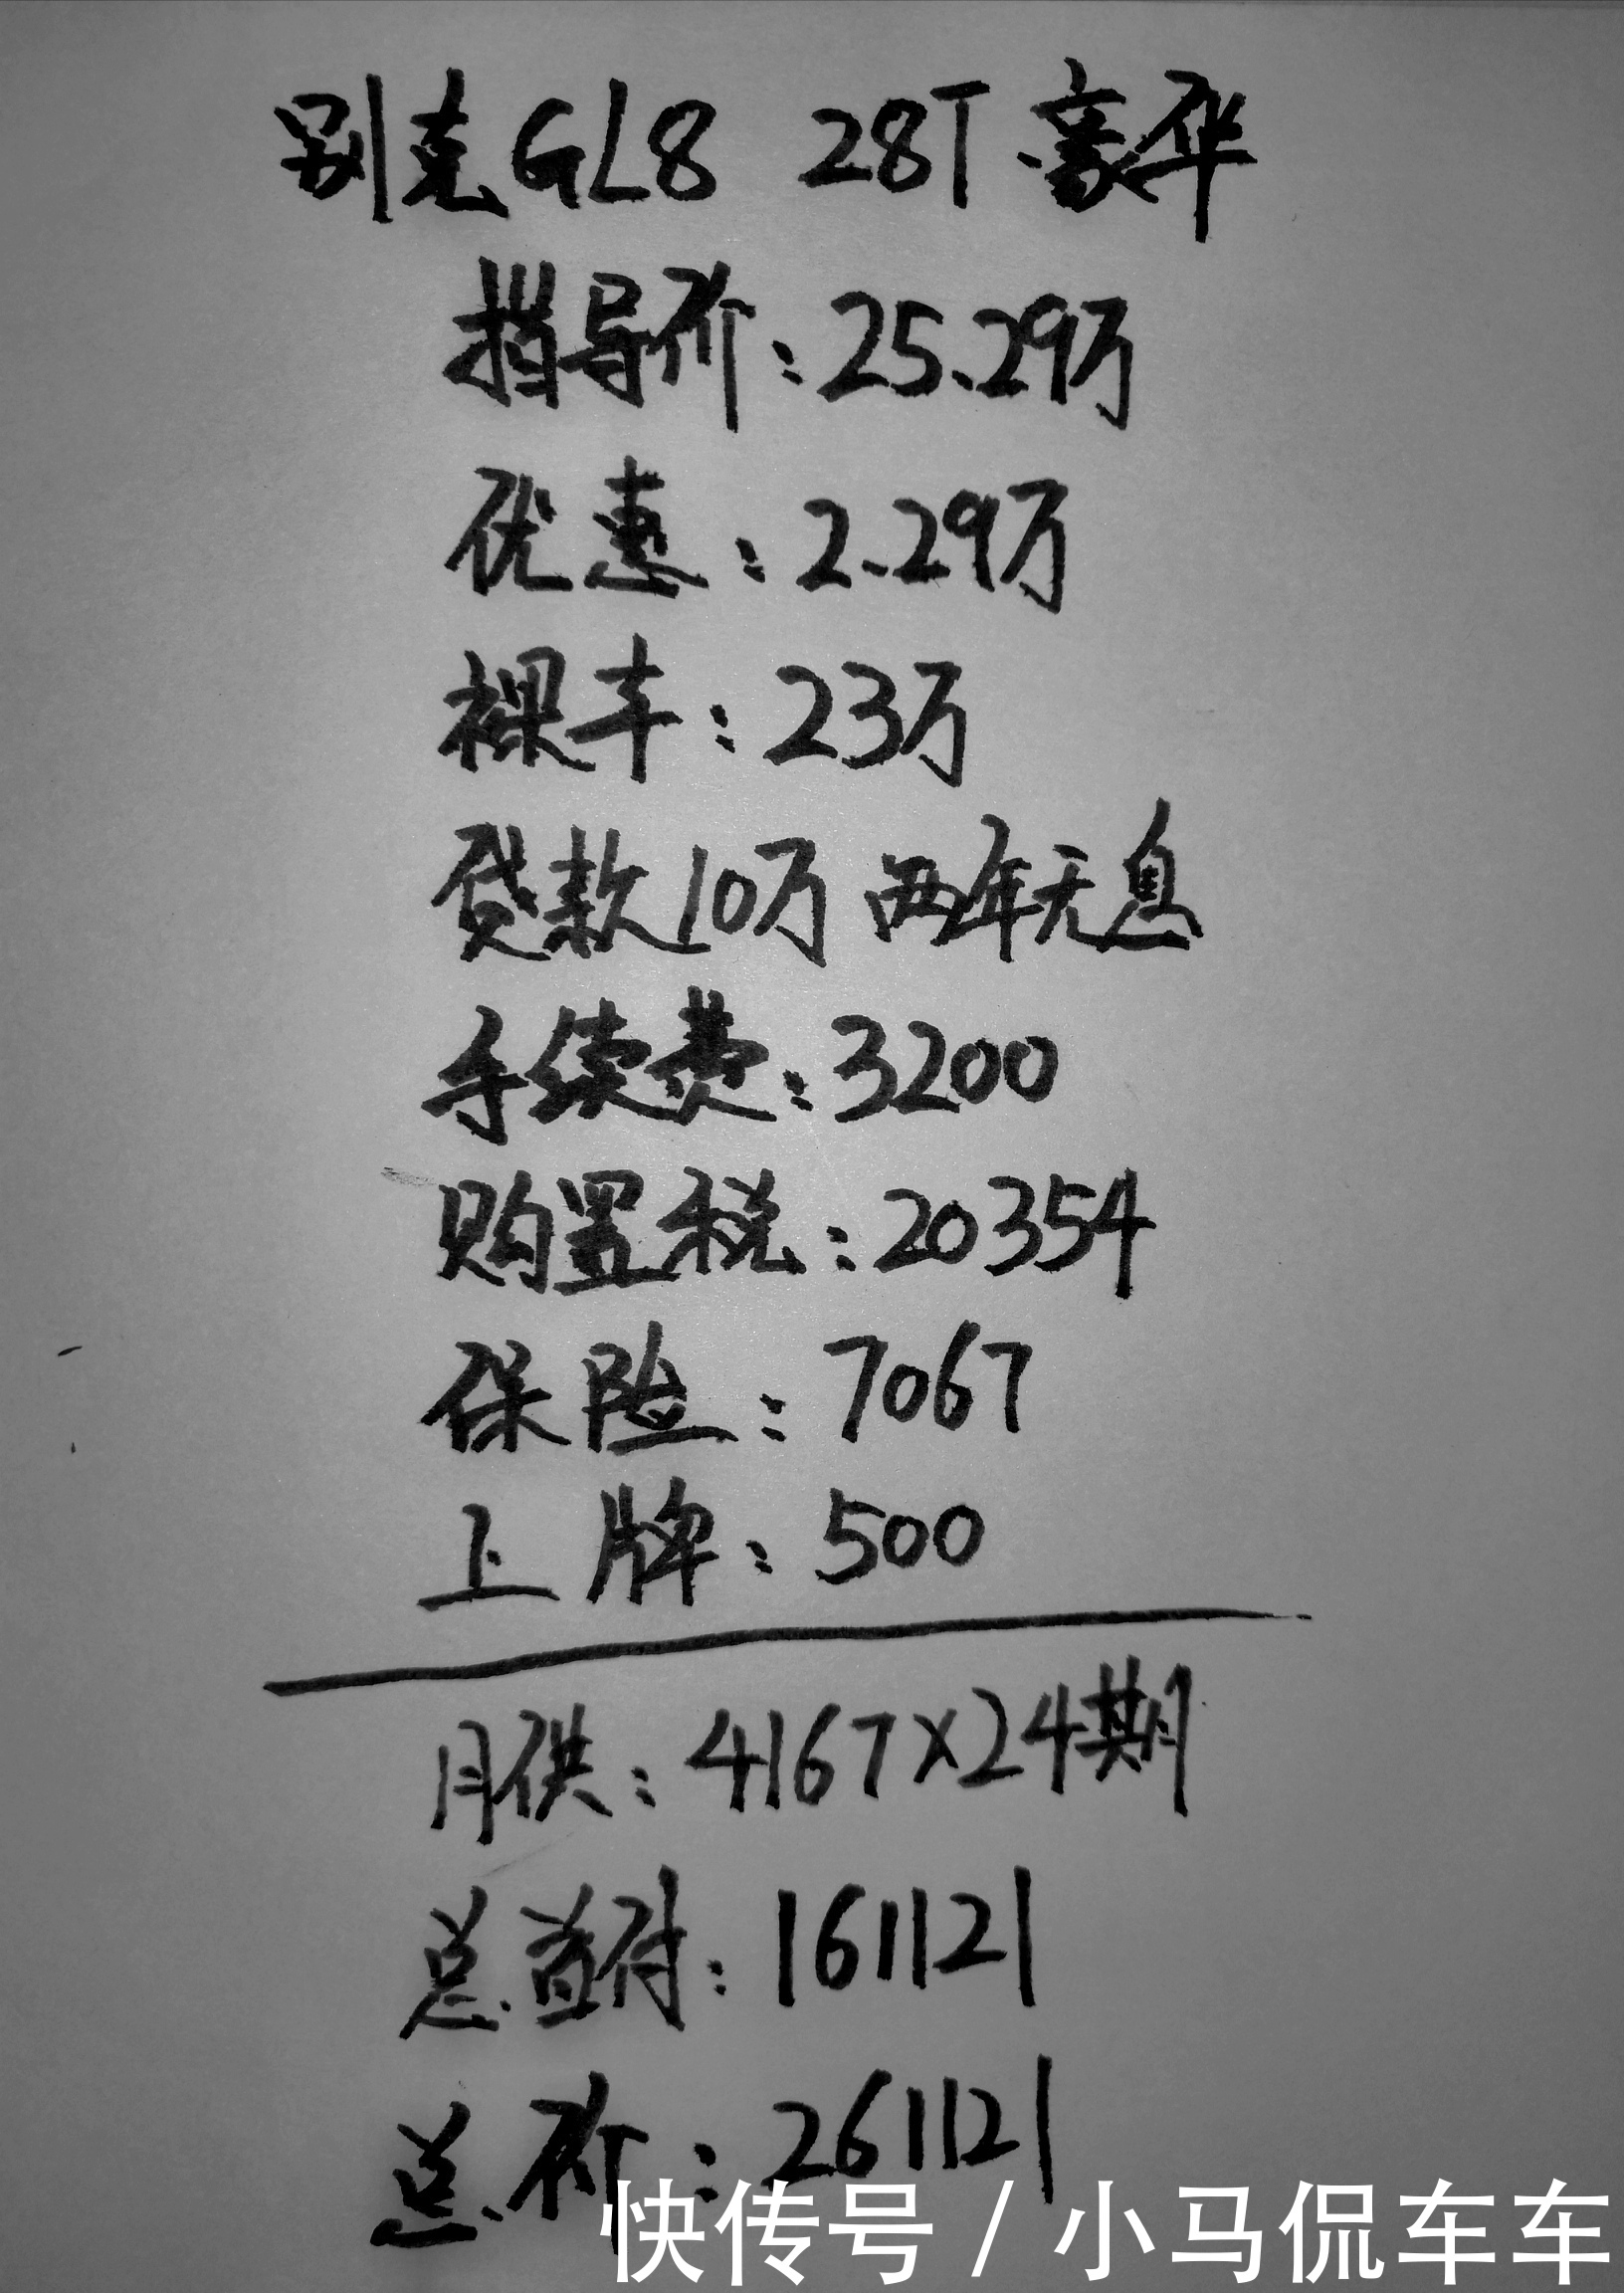 别克GL8 28T豪华
指导价:25.29万
优惠:2.29万
裸车:23万
贷款10万 两年无息
手续费:3200
购置税:20354
保险:7067
上牌:500
月供:4167×24期
总首付:161121
总价:261121
快传号/小马侃车车